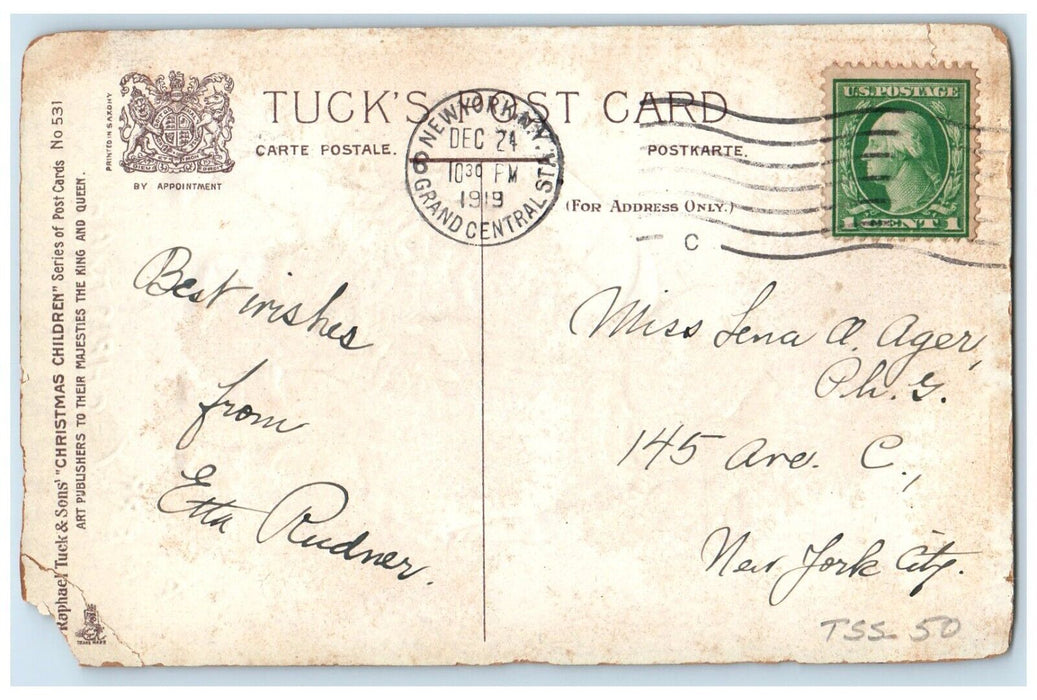 TUCK'S POST CARD
CARTE POSTALE.
POSTKARTE.
BY APPOINTMENT
PRINTED IN SAXONY
(FOR ADDRESS ONLY.)
NEW YORK, N.Y.
DEC 24
10 30 PM
1919
GRAND CENTRAL STA.
C
U.S. POSTAGE
1 CENT 1
Raphael Tuck & Sons' "CHRISTMAS CHILDREN" Series of Post Cards No 531
ART PUBLISHERS TO THEIR MAJESTIES THE KING AND QUEEN.
TRADE MARK
Best wishes
from
Etta Rudner.
Miss Lena A. Ager,
Ph. G.
145 Ave. C.,
New York City.
TSS 50